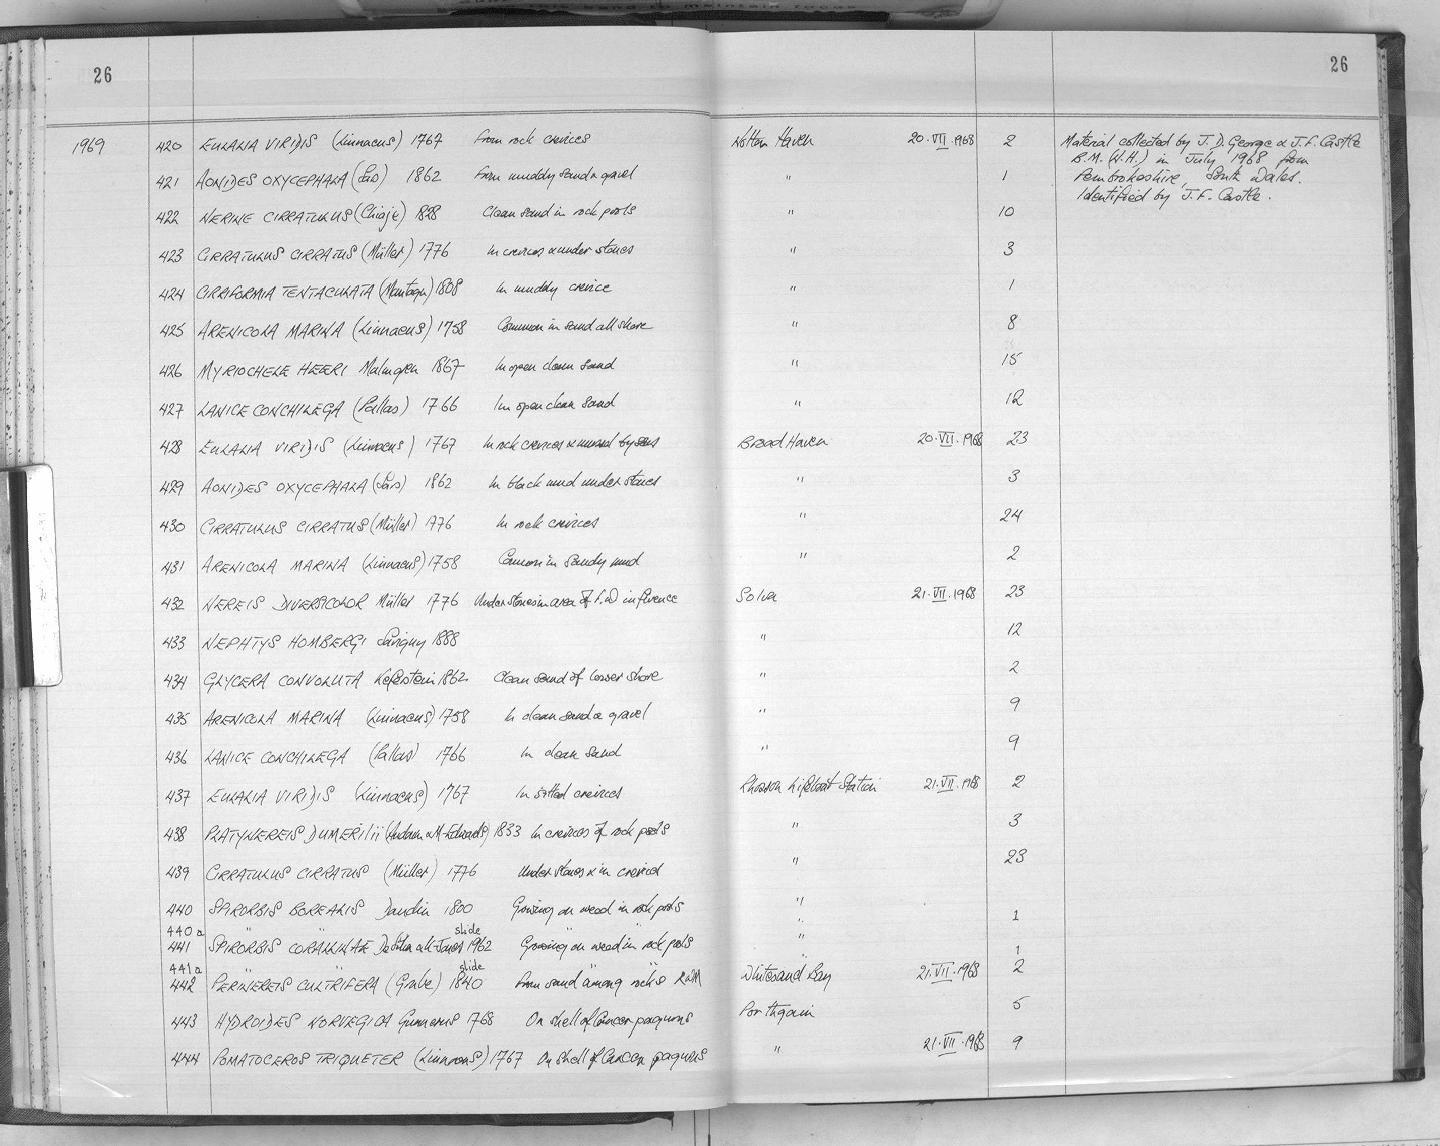 26 26
1969 420 EULALIA VIRIDIS (Linnaeus) 1767 From rock crevices Nolton Haven 20.VII.1968 2 Material collected by J.D. George & J.F. Castle
B.M.(N.H.) in July 1968 from
421 AONIDES OXYCEPHALA (Sars) 1862 From muddy sand & gravel " 1 Pembrokeshire, South Wales.
Identified by J.F. Castle.
422 NERINE CIRRATULUS (Chiaje) 1828 Clean sand in rock pools " 10
423 CIRRATULUS CIRRATUS (Müller) 1776 In crevices & under stones " 3
424 CIRRIFORMIA TENTACULATA (Montagu) 1808 In muddy crevice " 1
425 ARENICOLA MARINA (Linnaeus) 1758 Common in sand all shore " 8
426 MYRIOCHELE HEERI Malmgren 1867 In open clean sand " 15
427 LANICE CONCHILEGA (Pallas) 1766 In open clean sand " 12
428 EULALIA VIRIDIS (Linnaeus) 1767 In rock crevices & Broad Haven 20.VII.1968 23
429 AONIDES OXYCEPHALA (Sars) 1862 In black mud under stones " 3
430 CIRRATULUS CIRRATUS (Müller) 1776 In rock crevices " 24
431 ARENICOLA MARINA (Linnaeus) 1758 Common in sandy mud " 2
432 NEREIS DIVERSICOLOR Müller 1776 Under stones in area of F.W influence Solva 21.VII.1968 23
433 NEPHTYS HOMBERGI Savigny 1888 " 12
434 GLYCERA CONVOLUTA Keferstein 1862 Clean sand of lower shore " 2
435 ARENICOLA MARINA (Linnaeus) 1758 In clean sand & gravel " 9
436 LANICE CONCHILEGA (Pallas) 1766 In clean sand " 9
437 EULALIA VIRIDIS (Linnaeus) 1767 In silted crevices Rhosson Lifeboat Station 21.VII.1968 2
438 PLATYNEREIS DUMERILII (Audouin & M-Edwards) 1833 In crevices of rock pools " 3
439 CIRRATULUS CIRRATUS (Müller) 1776 Under stones & in crevices " 23
440 SPIRORBIS BOREALIS Daudin 1800 Growing on weed in rock pools "
440a " " slide " 1
441 SPIRORBIS CORALLINAE De Silva & K-Jones 1962 Growing on weed in rock pools "
441a " " slide " " " 1
442 PERINEREIS CULTRIFERA (Grube) 1840 From sand among rocks Whitesand Bay 21.VII.1968 2
443 HYDROIDES NORVEGICA Gunnerus 1768 On shell of Cancer pagurus Porthgain 5
444 POMATOCEROS TRIQUETER (Linnaeus) 1767 On shell of Cancer pagurus " 21.VII.1968 9